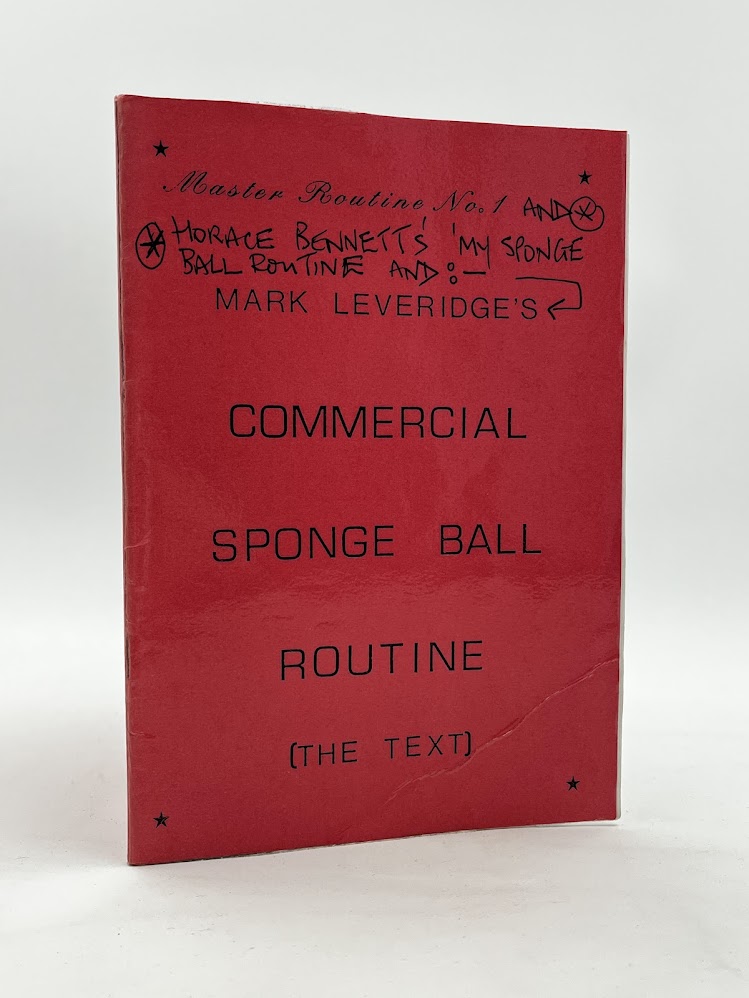 Master Routine No.1 AND
HORACE BENNETTS' 'MY SPONGE
BALL ROUTINE AND:-
MARK LEVERIDGE'S
COMMERCIAL
SPONGE BALL
ROUTINE
(THE TEXT)